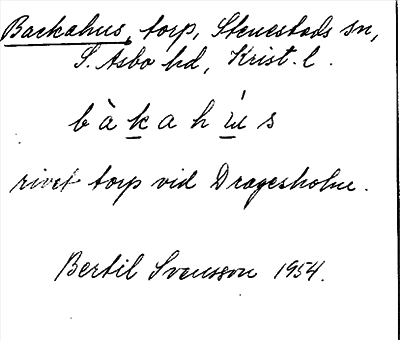 Backahus, torp, Stenestads sn,
S. Åsbo hd, Krist. l.
bàkahús
rivet torp vid Dragesholm.
Bertil Svensson 1954.